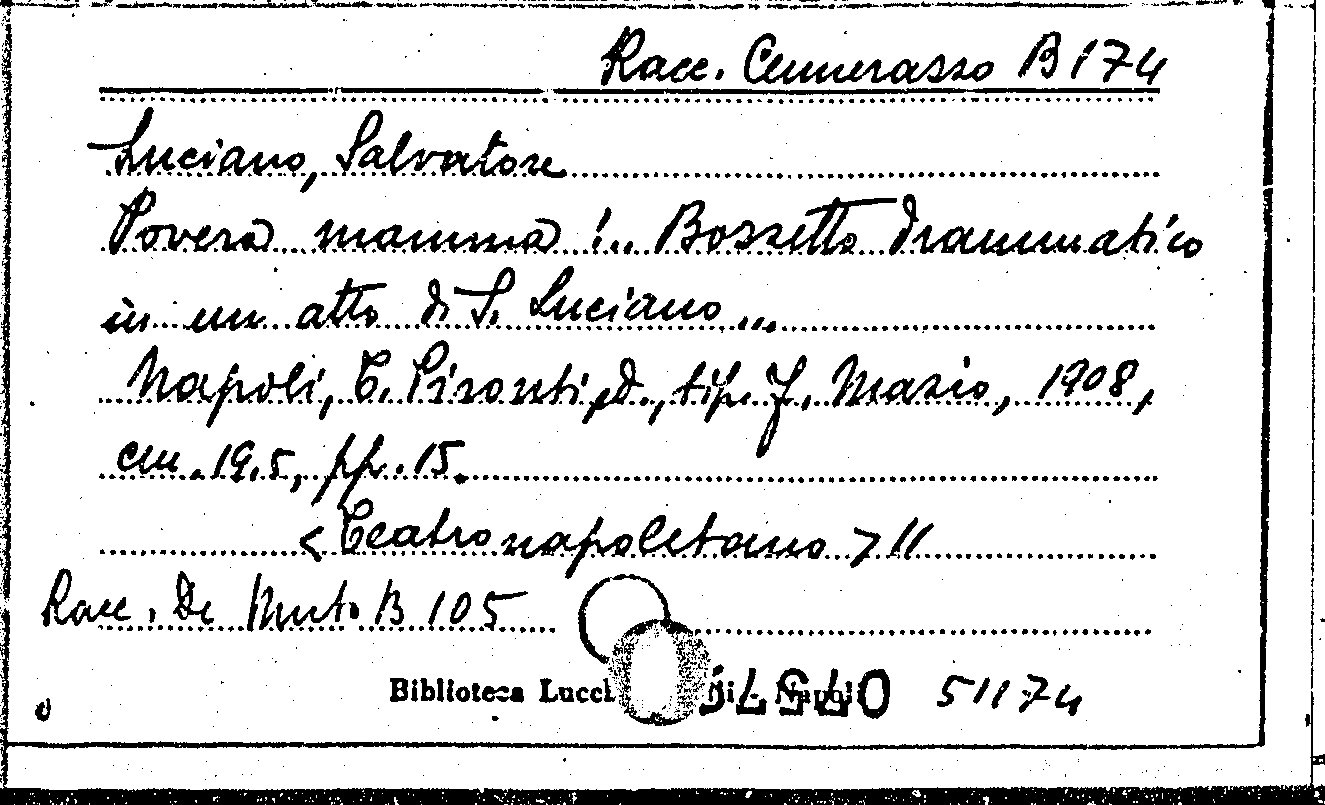 Racc. Cennerazzo B 174
Luciano, Salvatore
Povera mamma!.. Bozzetto drammatico
in un atto di S. Luciano...
Napoli, T. Pironti ed., tip. F. Masio, 1908,
cm. 19.5, pp. 15.
< Teatro napoletano > 11
Racc. De Muto B 105
Biblioteca Lucch Napoli 51174